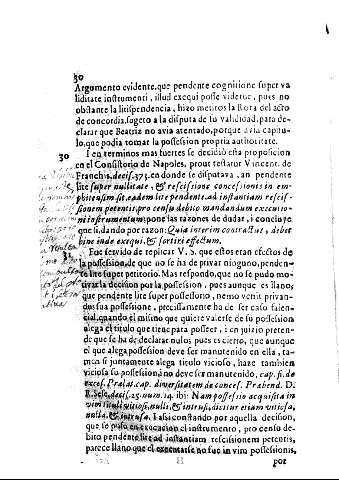 30
Argumento evidente, que pendente cognitione super va
liditate instrumenti, illud exequi posse videtur, pues no
obstante la litispendencia, hizo meritos la Rota del acto
de concordia, sugeto a la disputa de su validad, para de-
clarar que Beatriz no avia atentado, porque avia capitu-
lo, que podia tomar la possession propria authoritate.
30 I en terminos mas fuertes se decidiò esta proposicion
en el Consistorio de Napoles, prout testatur Vincent. de
Franchis, decis. 373. en donde se disputava, an pendente
lite super nullitate, & rescissione concessionis in em-
phiteusim sit eadem lite pendente ad instantiam rescis-
sionem petentis pro censu debito mandandum executio-
ni instrumentum: pone las razones de dudar, i concluye
que si, dando por razon: Quia interim contractus, debet
hinc inde exequi, & sortiri effectum.
31 Fue servido de replicar V. S. que estos eran efectos de
la possession, de que no se ha de privar ninguno, penden-
te lite super petitorio. Mas respondo, que no se pudo mo-
tivar la decision por la possession, pues aunque es llano,
que pendente lite super possessorio, nemo venit privan-
dus sua possessione, precissamente ha de ser caso falen-
cial, quando el mismo que quiere valerse de su possession
alega el titulo que tiene para posseer, i en juizio preten-
de que se ha de declarar nulo; pues es cierto, que aunque
el que alega possession deve ser manutenido en ella, ta-
men si juntamente alega titulo vicioso, haze tambien
viciosa su possession, i no deve ser manutenido, cap. si de
excess. Prælat. cap. diversitatem de concess. Prabend. D.
R. Sesse, decis. 25. num. 14. ibi: Nam possessio acquisita in
vim tituli vitiosi, nulli, & intrusi, dicitur etiam vitiosa,
nulla, & intrusa. I assi constando por aquella decision,
que se puso en execucion el instrumento, pro censu de-
bito pendente lite ad instantiam rescissionem petentis,
parece llano que el exentarse no fue in vim possessionis,
por